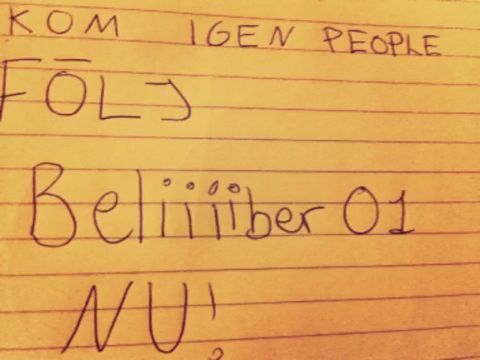 KOM IGEN PEOPLE
FÖLJ
Beliiiiber 01
NU!